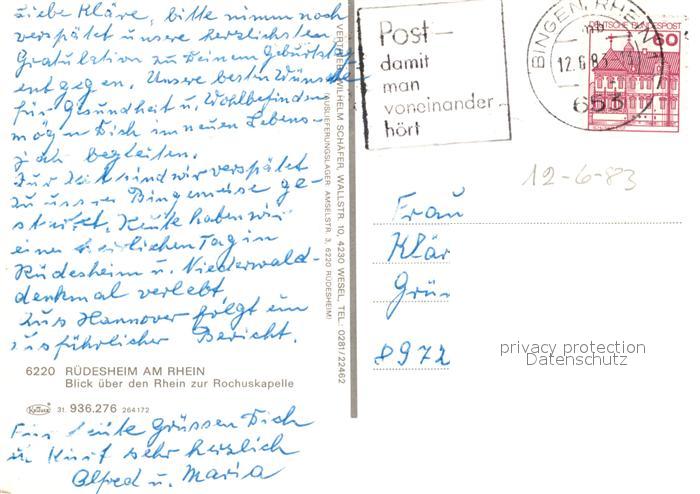 Liebe Kläre, bitte nimm noch
verspätet unsere herzlichsten
Gratulation zu Deinem Geburtstag
entgegen. Unsere besten Wünsche
für Gesundheit u. Wohlbefinden
mögen Dich im neuen Lebens-
jahr begleiten.
Zur Zeit sind wir verspätet
zu unserer Bingenreise ge-
startet. Heute haben wir
einen herrlichen Tag in
Rüdesheim u. Niederwald-
denkmal verlebt
Aus Hannover folgt ein
ausführlicher Bericht.
6220 RÜDESHEIM AM RHEIN
Blick über den Rhein zur Rochuskapelle
Krüger 31. 936.276 264172
Für heute grüssen Dich
u. Kurt sehr herzlich
Alfred u. Maria
VERTRIEB: WILHELM SCHÄFER, WALLSTR. 10, 4230 WESEL, TEL.: 0281/22462
(AUSLIEFERUNGSLAGER: AMSELSTR. 3, 6220 RÜDESHEIM)
Post -
damit
man
voneinander
hört
BINGEN, RHEIN
12.6.83
653
DEUTSCHE BUNDESPOST
60
12-6-83
Frau
Klär
Grü
8972
privacy protection
Datenschutz